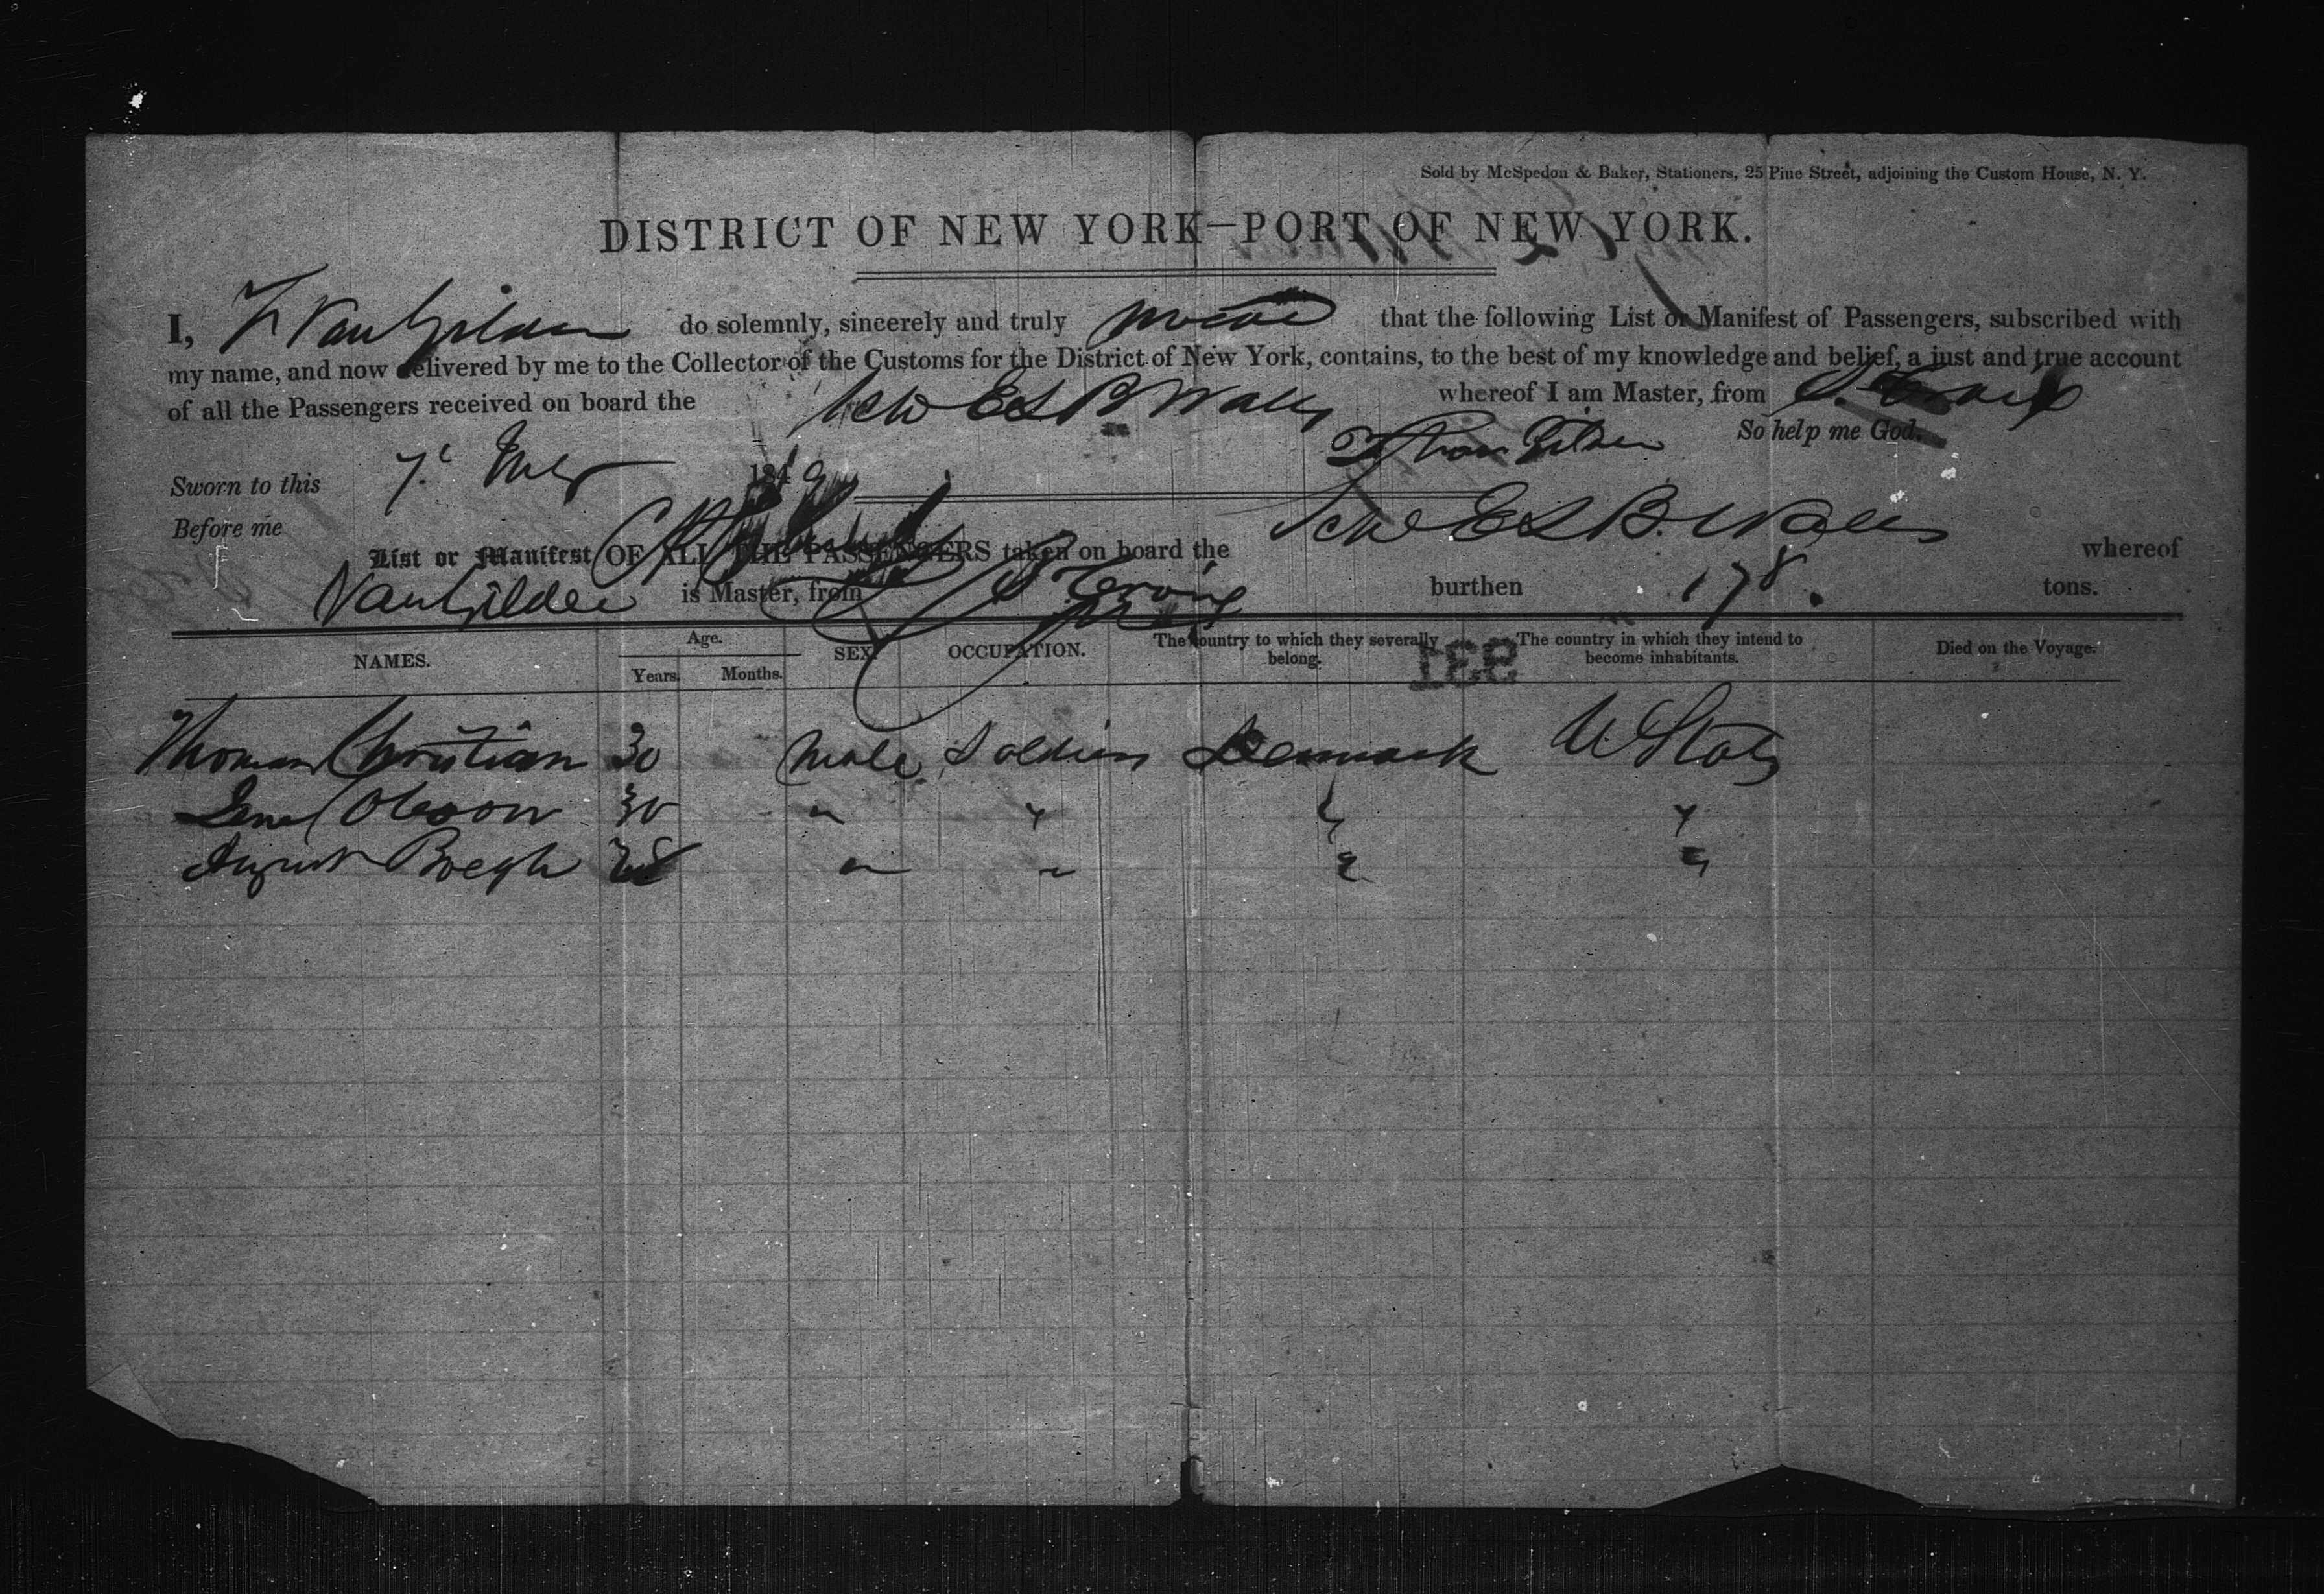 Sold by McSpedon & Baker, Stationers, 25 Pine Street, adjoining the Custom House, N. Y.
DISTRICT OF NEW YORK—PORT OF NEW YORK.
I, VanGilder do solemnly, sincerely and truly swear that the following List or Manifest of Passengers, subscribed with
my name, and now delivered by me to the Collector of the Customs for the District of New York, contains, to the best of my knowledge and belief, a just and true account
of all the Passengers received on board the Schr E S B Walls whereof I am Master, from St Croix
So help me God.
Van Gilder
Sworn to this 7 1849
Before me
List or Manifest OF ALL THE PASSENGERS taken on board the Schr E S B. Walls whereof
VanGilder is Master, from St Croix burthen 178. tons.
NAMES. Age. Years. Months. SEX. OCCUPATION. The country to which they severally belong. The country in which they intend to become inhabitants. Died on the Voyage.
133
Thomas Christian 30 Male Soldier Denmark U States
Oleson 30 " " " "
August Boegh 28 " " " "